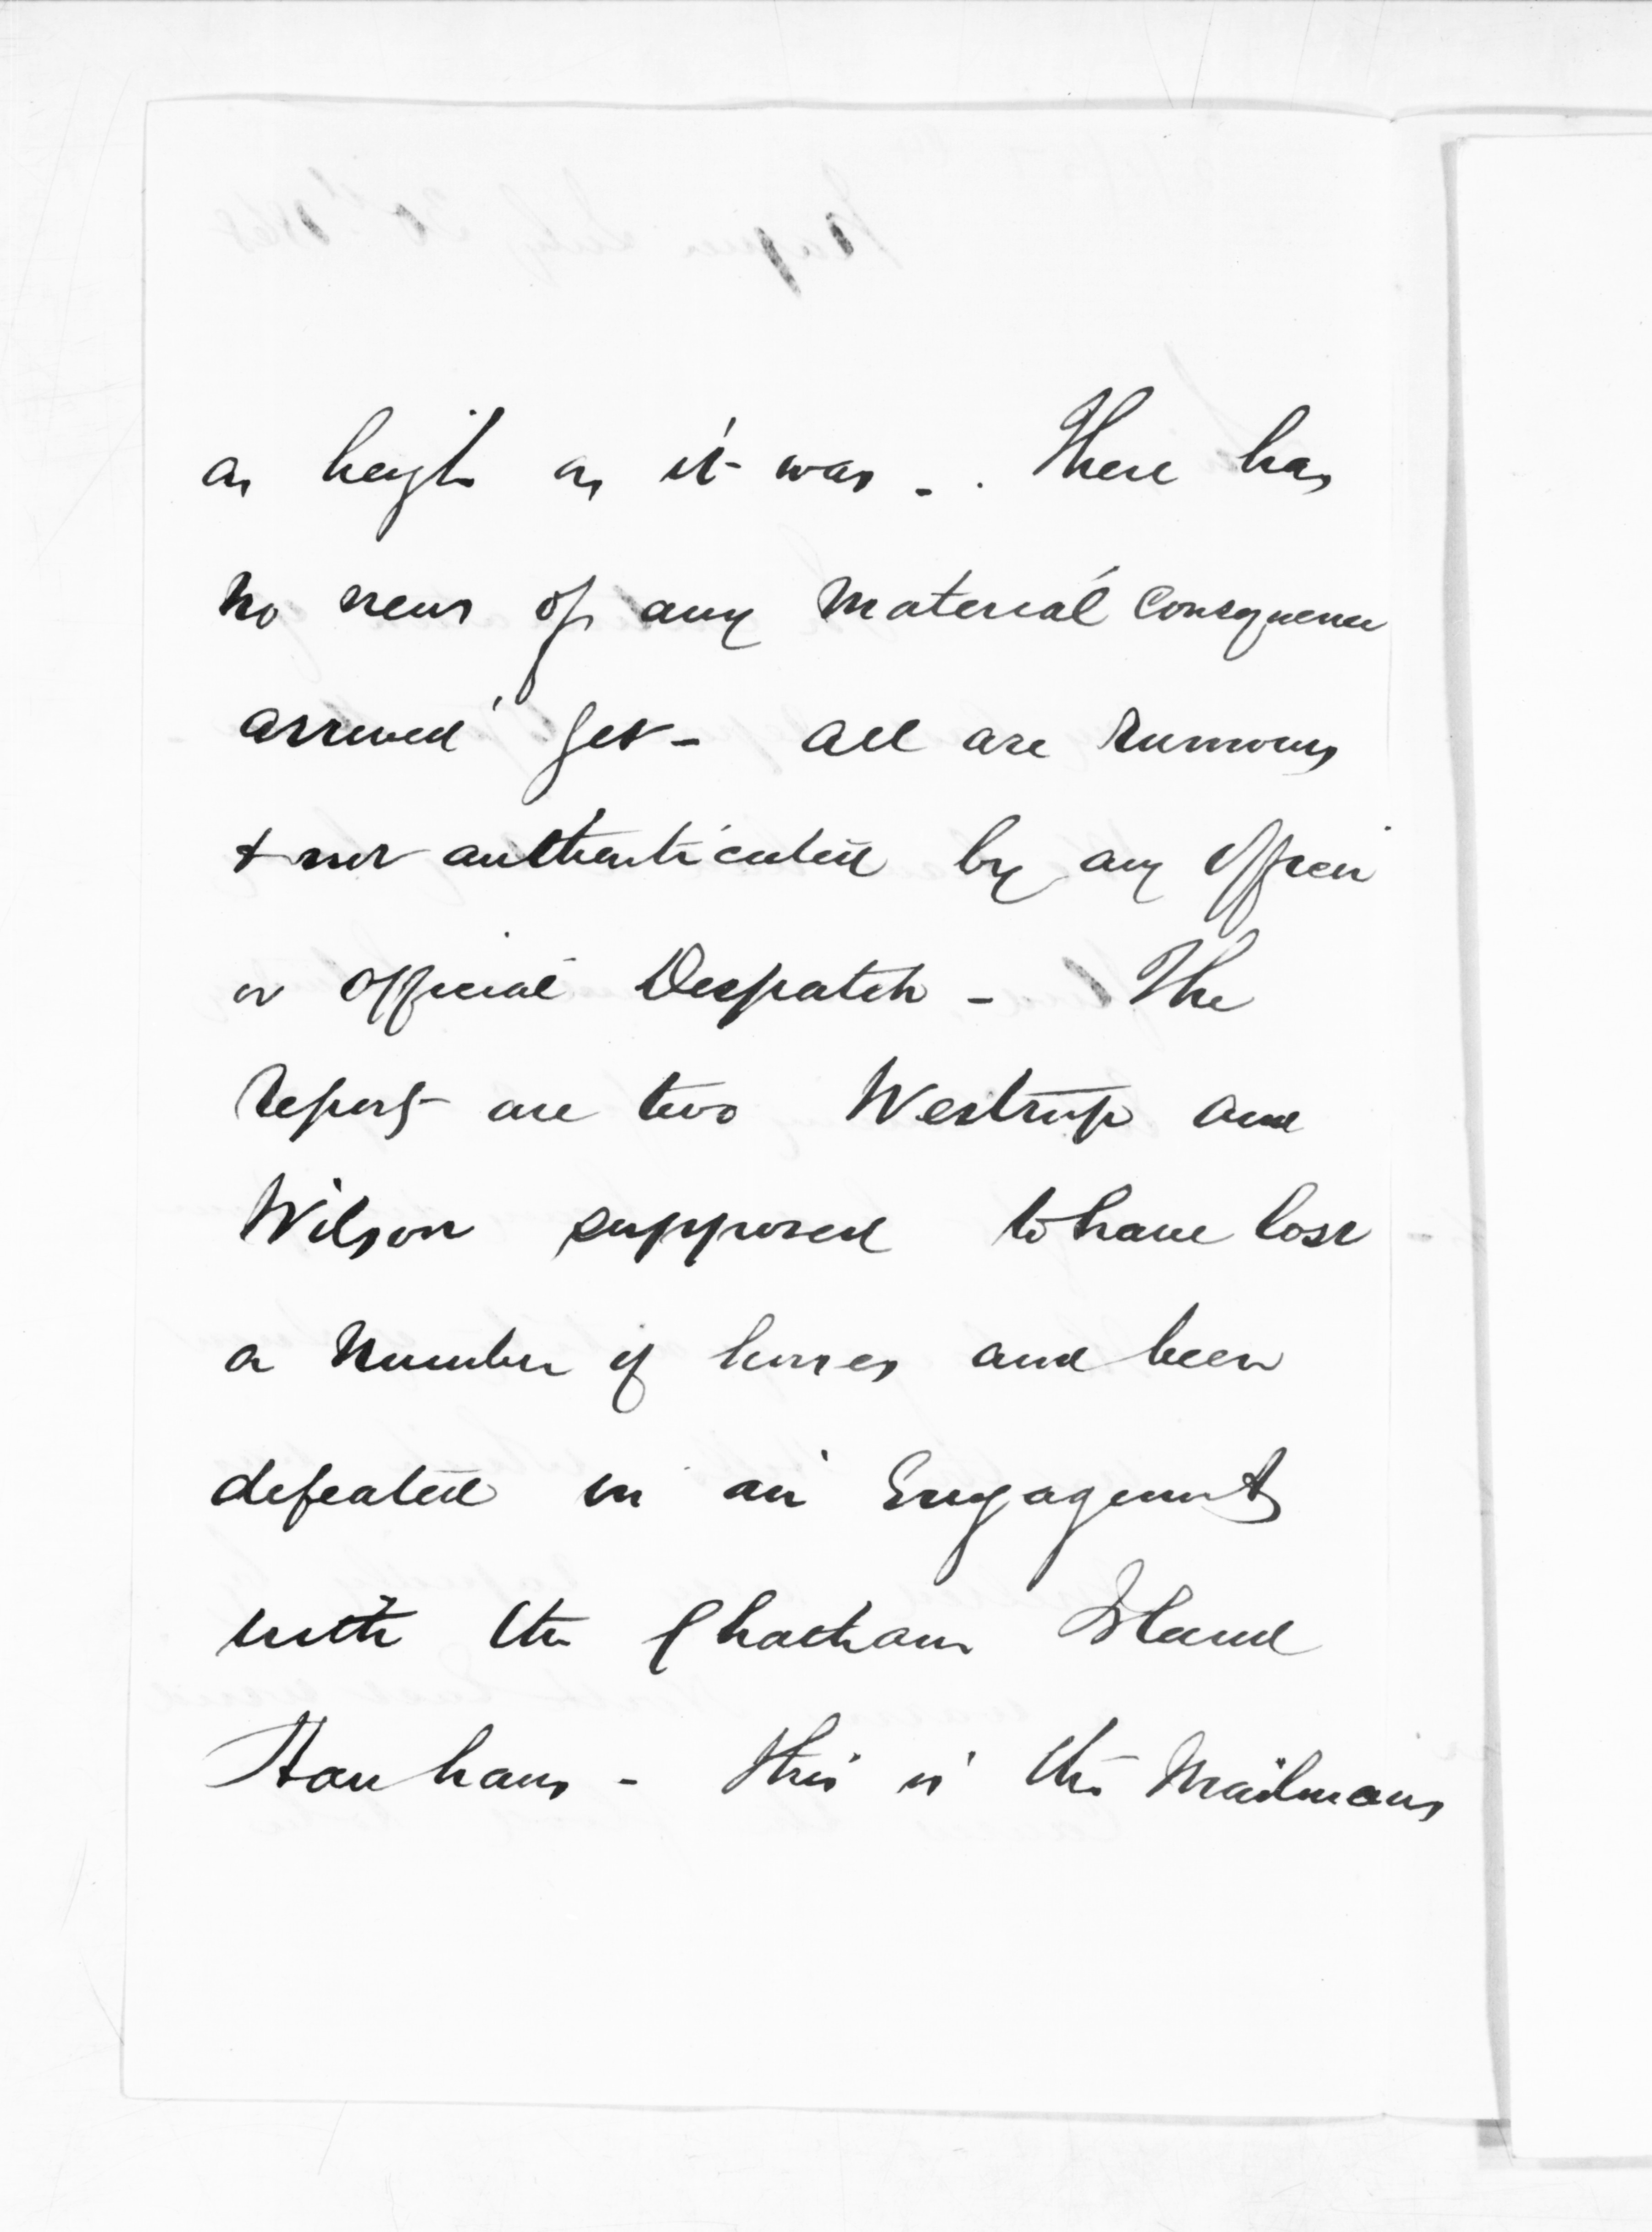 as heigh as it was - . There has
no news of any material consequence
arrived yet - all are rumours
& not authenticated by any Officer
or official Despatch - The
report are two Westrup and
Wilson supposed to have lost
a number of horses and been
defeated in an Engagement
with the Chatham Island
Hauhaus - this is the Mailmans